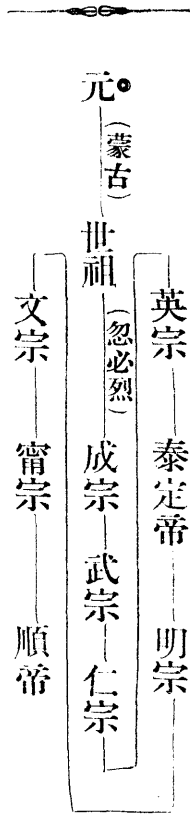 元
(蒙古)
世祖
(忽必烈)
成宗
武宗
仁宗
英宗
泰定帝
明宗
文宗
甯宗
順帝